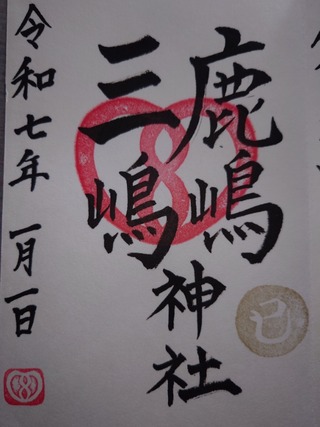 鹿嶋
三嶋
神社
巳
令和七年 一月一日